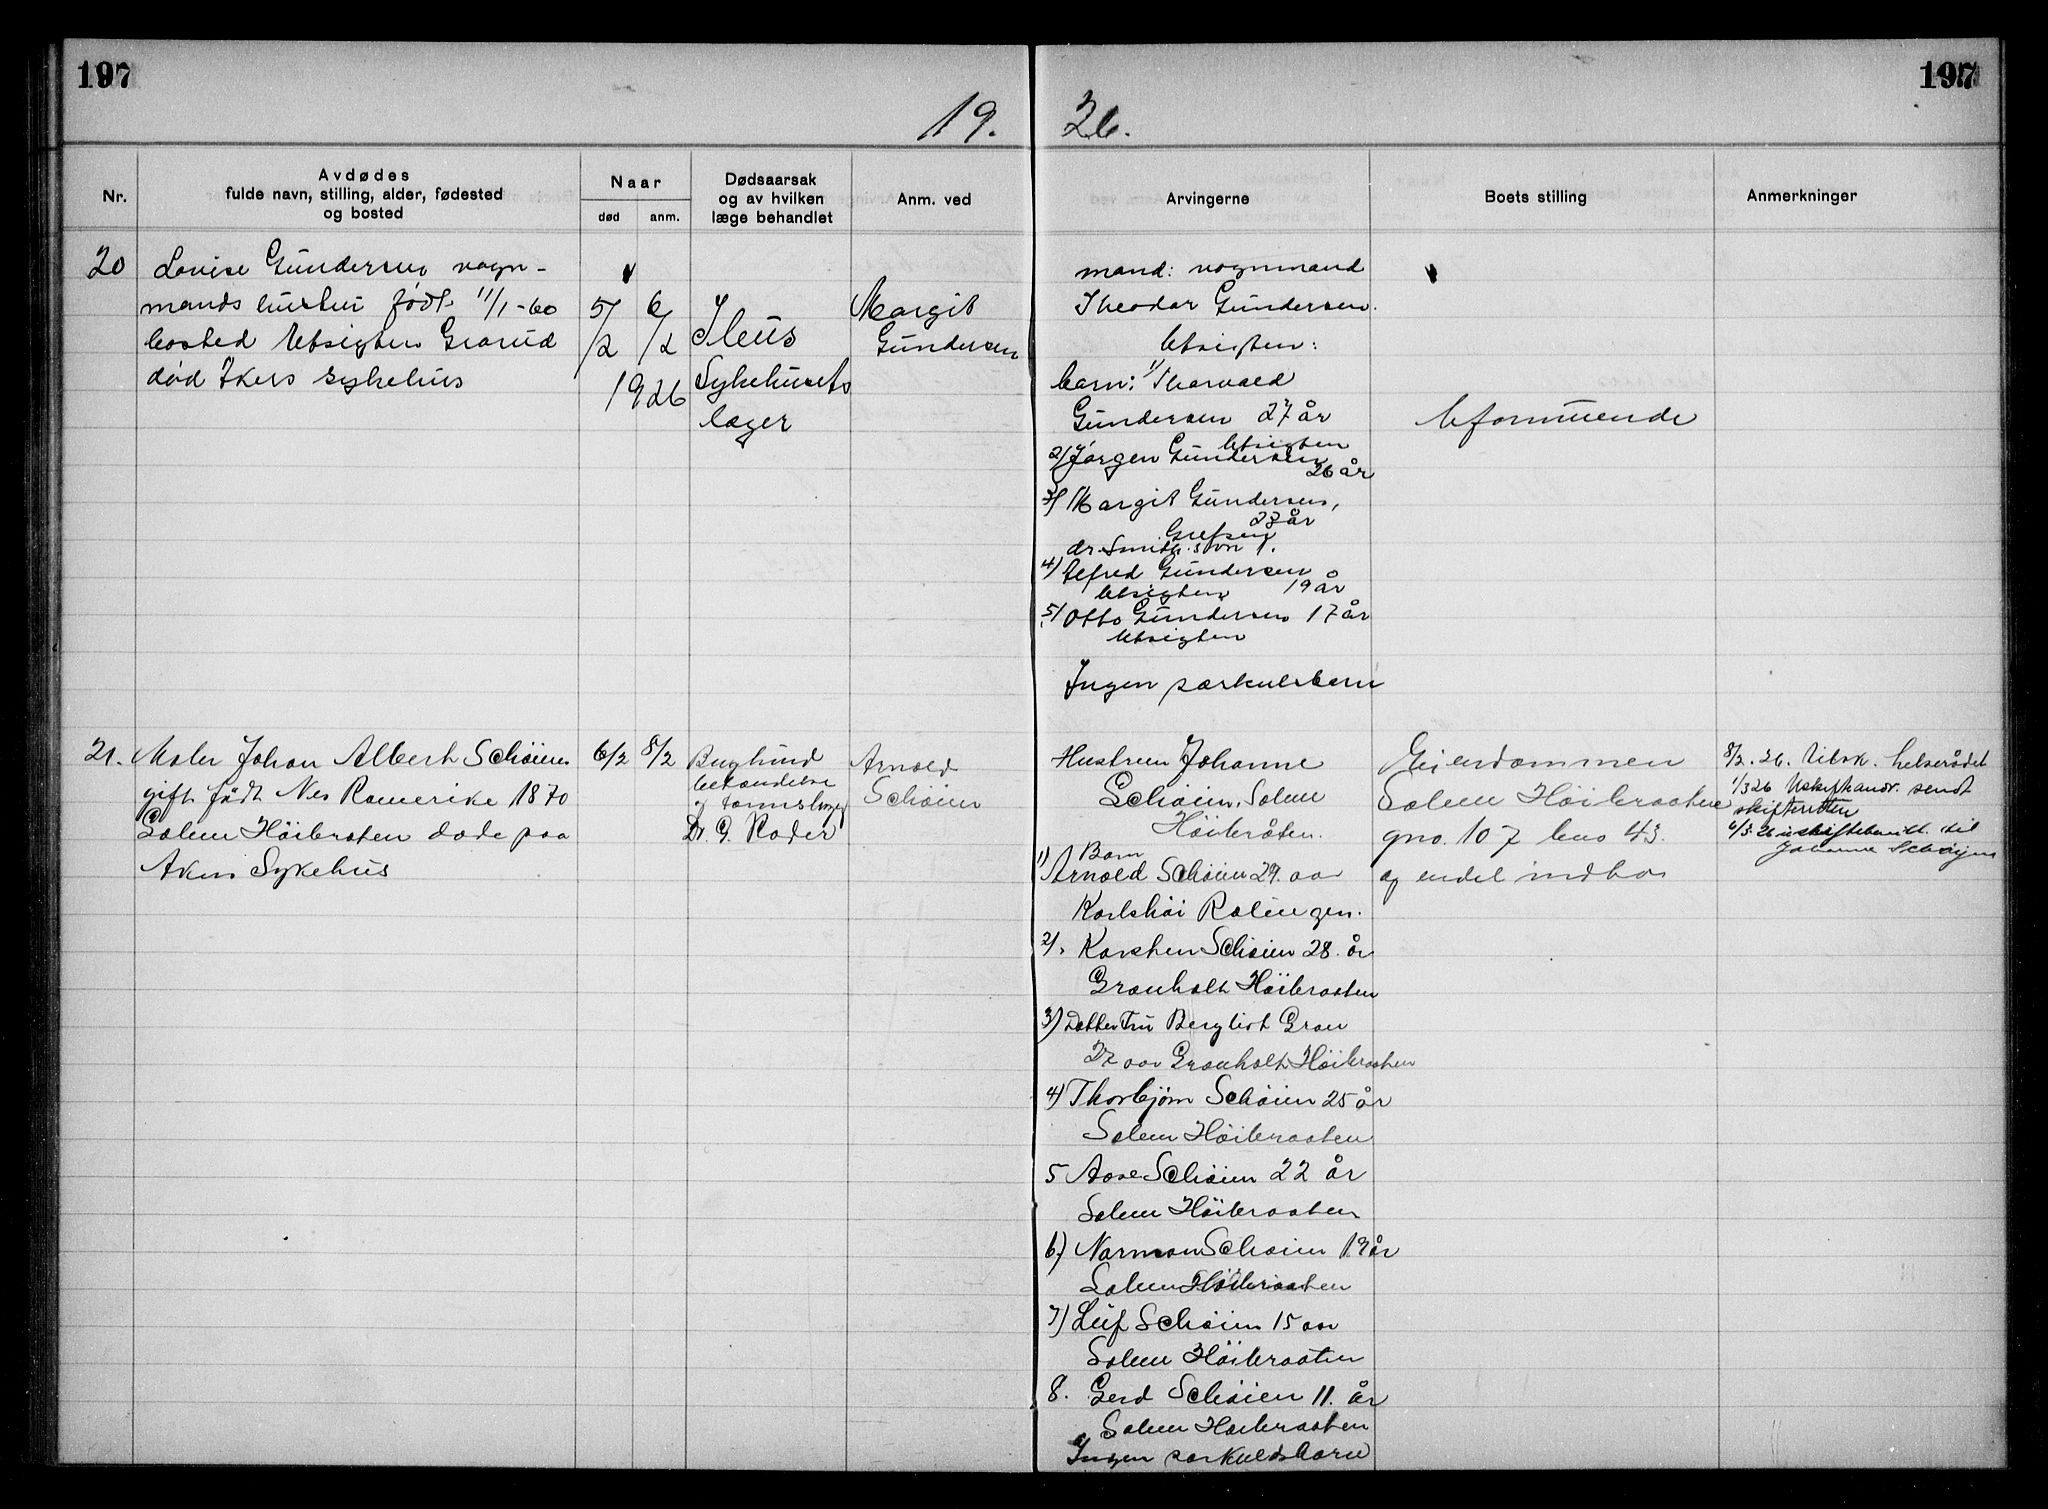 197
197
19.
26.
Nr.
Avdødes
fulde navn, stilling, alder, fødested
og bosted
Naar
død
anm.
Dødsaarsak
og av hvilken
læge behandlet
Anm. ved
Arvingerne
Boets stilling
Anmerkninger
20
Lovise Gundersen vogn-
mands hustru født 11/1-60
bosted Utsigten Grorud
død Akers sykehus
5/2
6/2
1926
Ileus
Sykehusets
læger
Margit
Gundersen
mand: vognmand
Theodor Gundersen.
Utsigten:
barn: 1/ Thorvald
Gundersen 27 år
Utsigten
2/ Jørgen Gundersen
26 år
3/ Margit Gundersen,
23 år
Grefsen
dr. Smith.s vn 1.
4) Alfred Gundersen
Utsigten 19 år
5/ Otto Gundersen 17 år
Utsigten
Ingen særkulsbarn
Uformuende
21.
Maler Johan Albert Schøien
gift født Nes Romerike 1870
Solem Høibraten døde paa
Akers Sykehus
6/2
8/2
Bughind
betændelse
og tarmslyng
Dr. G. Roder
Arnold
Schøien
Hustruen Johanne
Schøien, Solem
Høibråten.
Barn
1) Arnold Schøien 29. aar
Karlshøi Rælingen.
2/. Karsten Schøien 28. år
Granholt Høibraaten
3) Datter Fru Bergliot Gran
27 aar Granholt Høibraaten
4) Thorbjørn Schøien 25 år
Solem Høibraaten
5 Aase Schøien 22 år
Solem Høibraaten
6.) Norman Schøien 19 år
Solem Høibraaten
7) Leif Schøien 15 aar
Solem Høibraaten
8. Gerd Schøien 11. år
Solem Høibraaten
Ingen særkuldsbarn
Eiendommen
Solem Høibraaten
gno. 107 bno 43.
og endel indbo
8/2. 26. Utsk. helserådet
1/3 26 sendt
skifteretten
6/3. 26 til
Johanne Schøyen